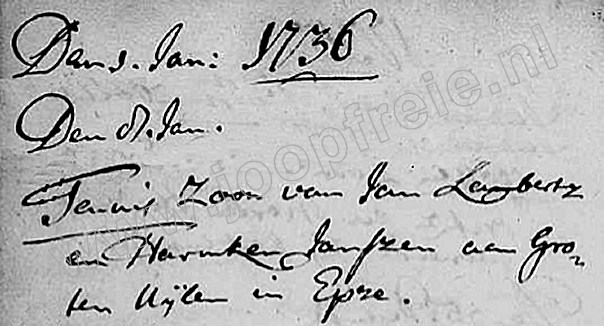 Den 1. Jan: 1736
Den 8. Jan.
Teunis Zoon van Jan Lambertz
en Harmken Janszen aen Gro-
ten Uijlen in Epse.
www.joopfreie.nl